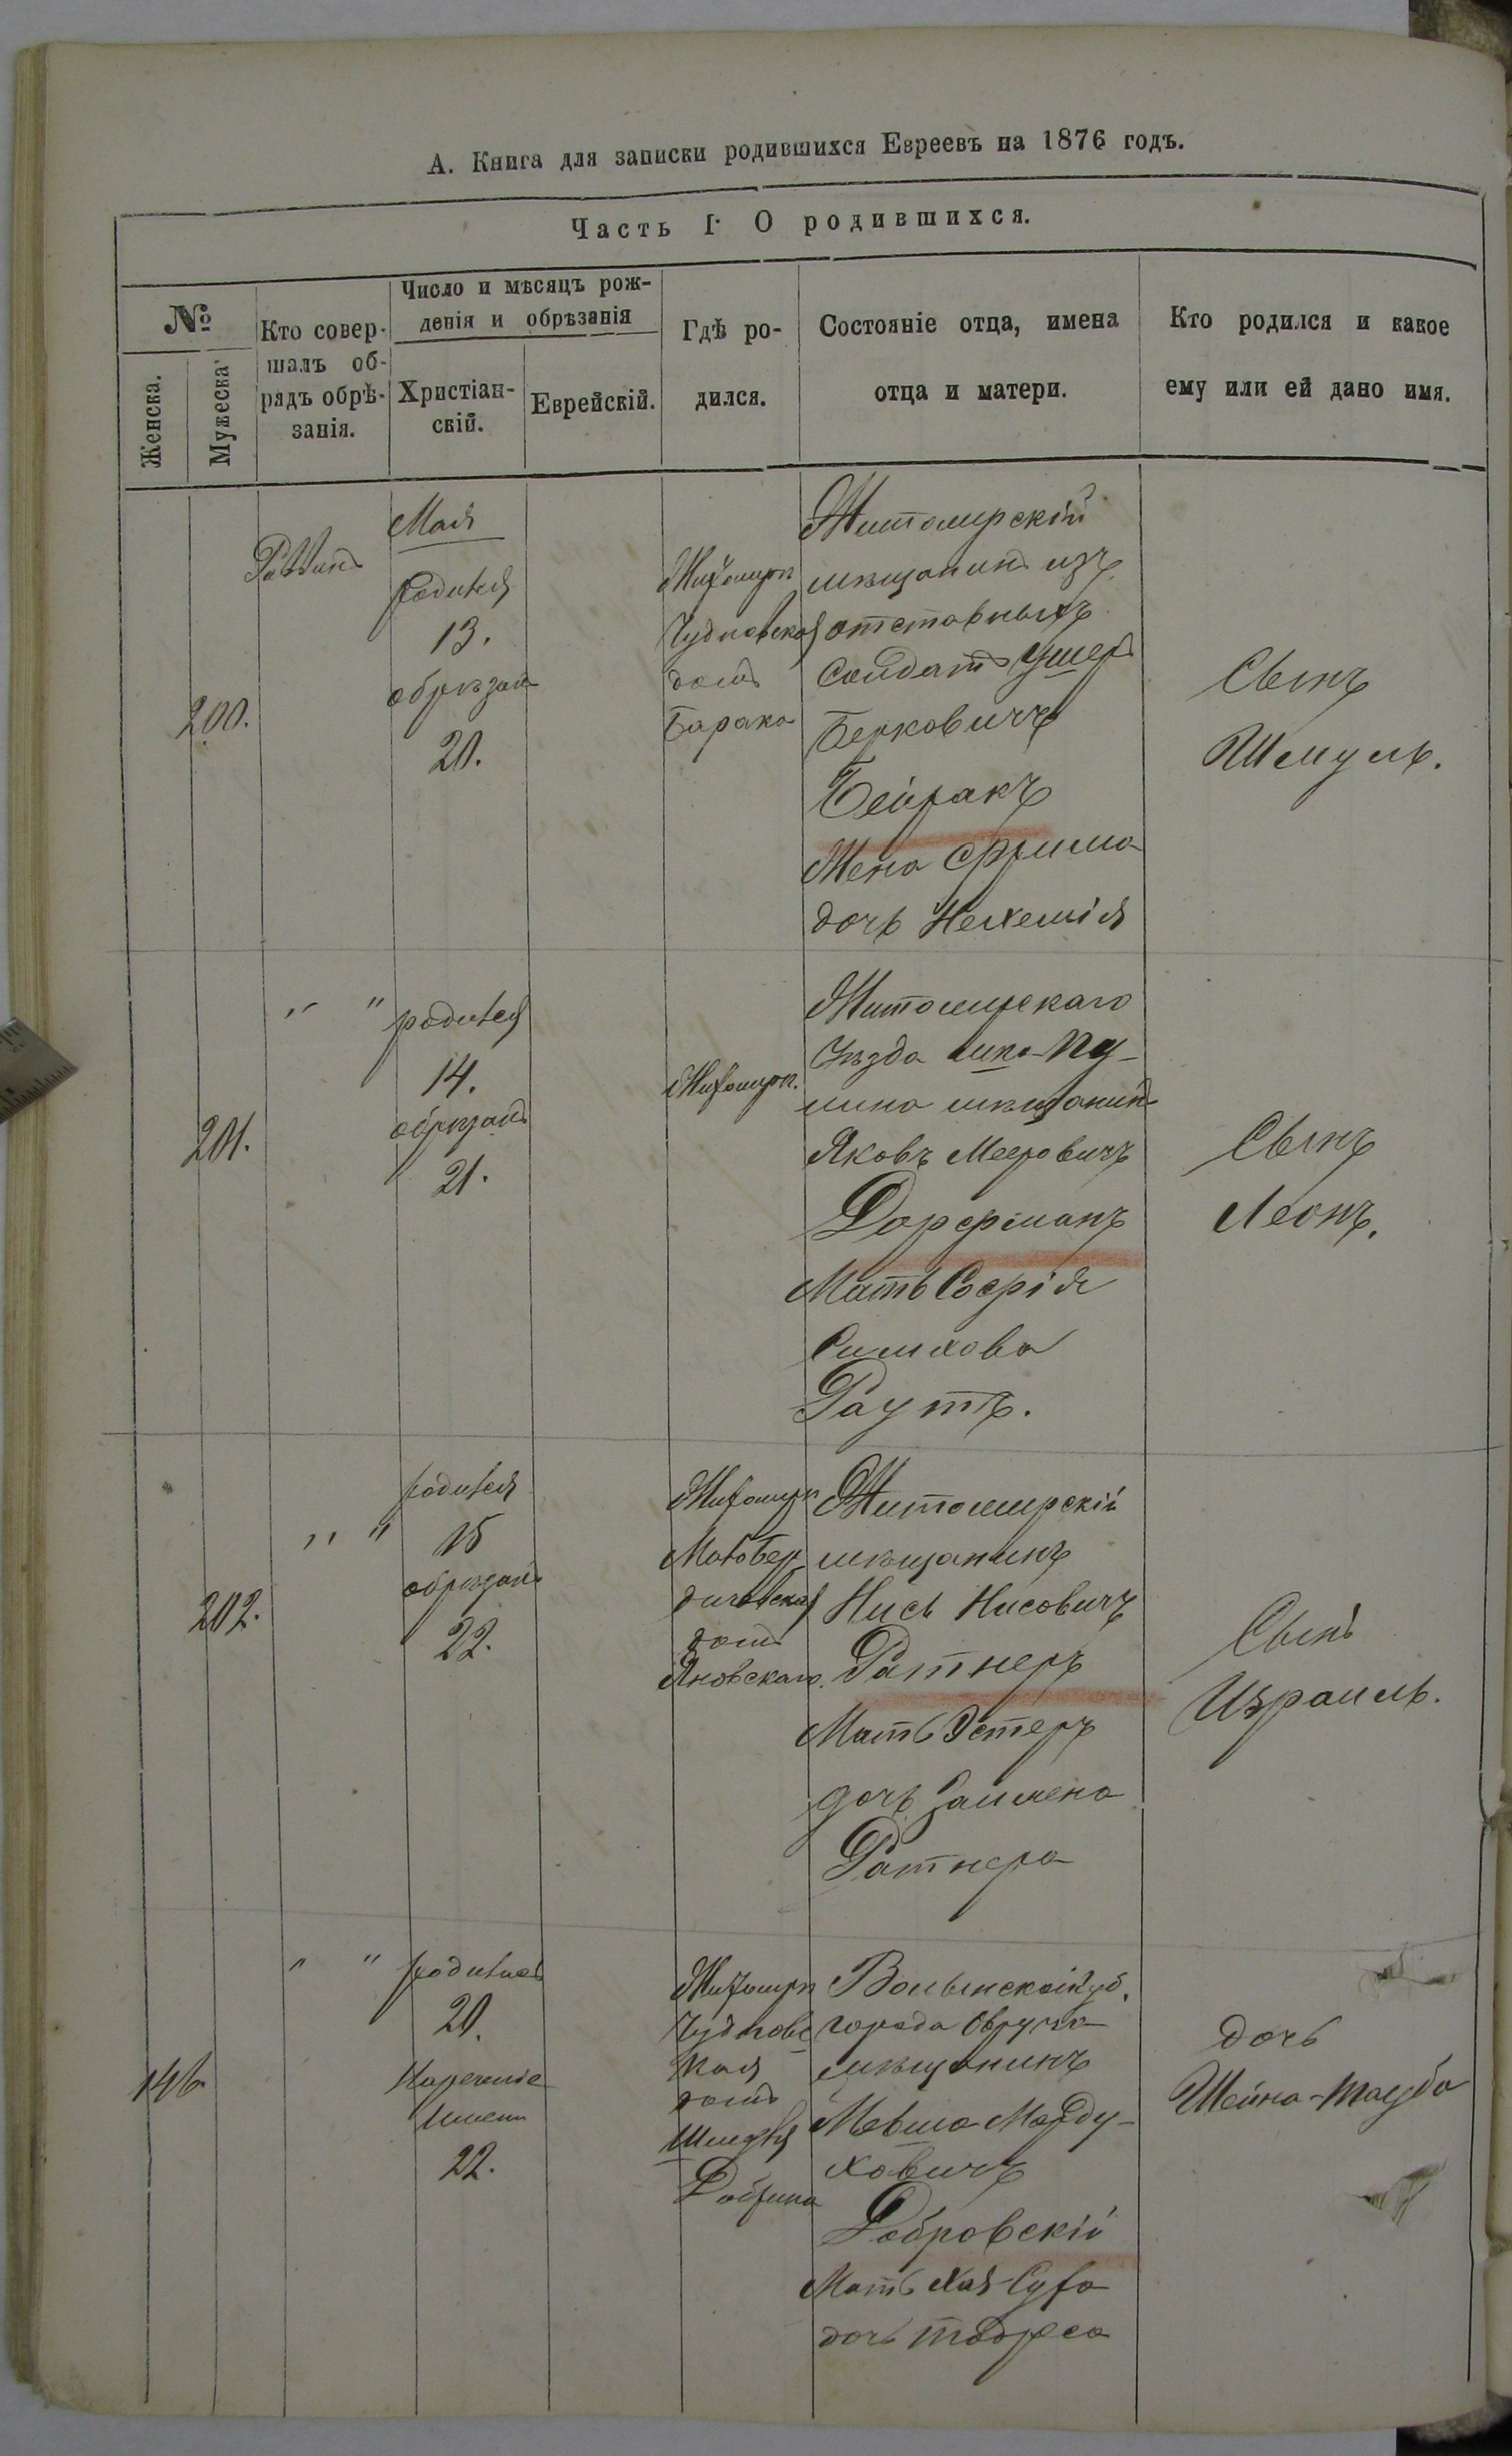 А. Книга для записки родившихся Евреевъ на 1876 годъ.
Часть I. О родившихся.
№
Женска.
Мужеска
Кто совер-
шалъ об-
рядъ обрѣ-
занія.
Число и мѣсяцъ рож-
денія и обрѣзанія
Христіан-
скій.
Еврейскій.
Гдѣ ро-
дился.
Состояніе отца, имена
отца и матери.
Кто родился и какое
ему или ей дано имя.
200.
Раввинъ
Мая
родился
13.
обрѣзан
20.
Житомиръ
Чудновская
домъ
Барака
Житомирскій
мѣщанинъ изъ
отставныхъ
солдатъ Ушеръ
Берковичъ
Бейракъ
Жена Фрима
дочь Нехемія
Сынъ
Шмуль.
201.
" "
родился
14.
обрѣзанъ
21.
Житомиръ.
Житомирскаго
Уѣзда
мѣщанинъ
Яковъ Мееровичъ
Дорфманъ
Мать Софія
Раутъ.
Сынъ
Леонъ.
202.
" "
родился
15
обрѣзанъ
22.
Житомиръ
МалоБер
дичевская
домъ
Яновскаго.
Житомирскій
мѣщанинъ
Нись Нисовичъ
Ратнеръ
Мать Эстеръ
дочь Залмена
Ратнера
Сынъ
Израиль.
146
" "
родилась
20.
Нареченіе
Имени
22.
Житомиръ
Чудновс
кая
домъ
Шмуля
Волынской губ.
города Овруча
мѣщанинъ
Мевша Морду-
ховичъ
Добровскій
Мать Хая-Сура
дочь Тодреса
дочь
Шейна-Тауба